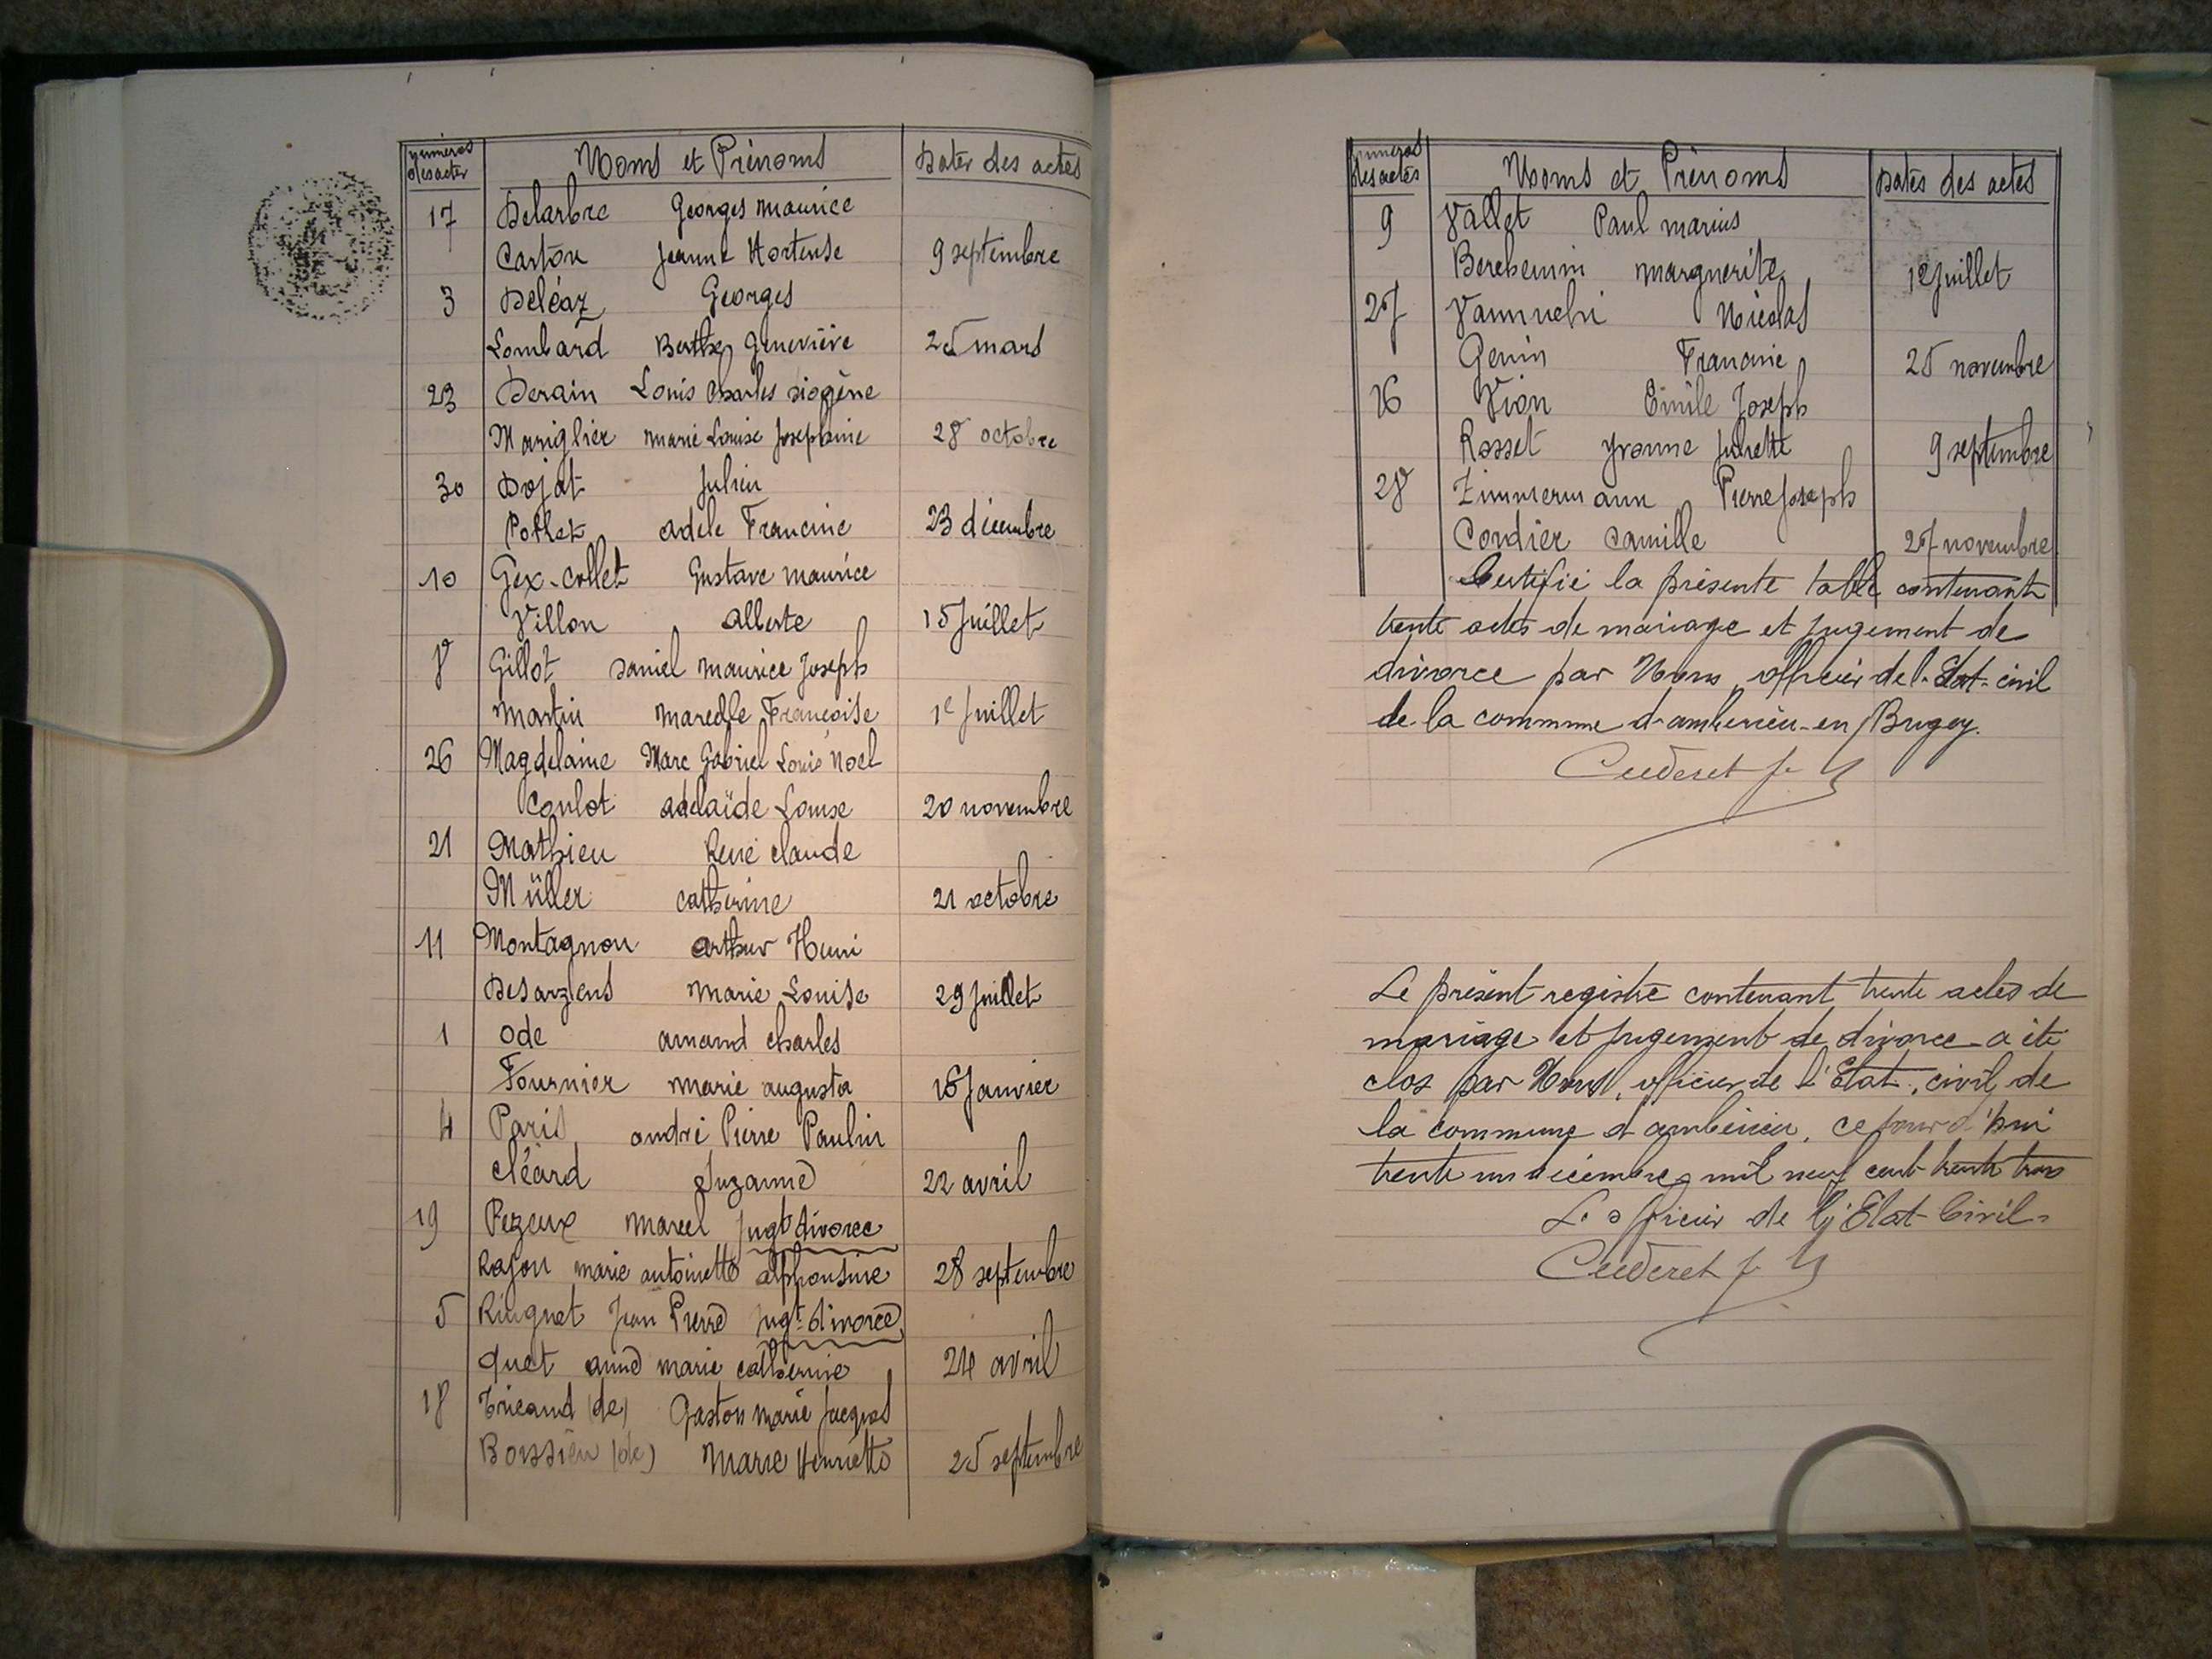 numéros Noms et Prénoms Dates des actes
des actes
17 Delarbre Georges Maurice
Caston Jeanne Hortense 9 septembre
3 Deléaz Georges
Lombard Berthe Geneviève 25 mars
23 Derain Louis Charles Diogène
Mariglier Marie Louise Joséphine 28 octobre
30 Dojat Julien
Pollet Adèle Francine 23 décembre
10 Gex-Collet Gustave Maurice
Villon Alberte 15 Juillet
8 Gillot Daniel Maurice Joseph
Martin Marcelle Françoise 1e Juillet
26 Magdelaine Marc Gabriel Louis Noel
Coulot Adelaïde Louise 20 novembre
21 Mathieu René Claude
Müller Catherine 21 octobre
11 Montagnon Arthur Henri
Desarzens Marie Louise 29 Juillet
1 Ode Amand Charles
Fournier Marie Augusta 16 Janvier
4 Paris André Pierre Paulin
Cléard Suzanne 22 avril
19 Pezeux Marcel Jugt divorce
Rajon Marie Antoinette Alphonsine 28 septembre
5 Ringuet Jean Pierre Jugt divorce
Quet Anne Marie Catherine 24 avril
18 Tricaud (de) Gaston Marie Jacques
Boissieu (de) Marie Henriette 25 septembre
numéros Noms et Prénoms Dates des actes
des actes
9 Vallet Paul Marius
Berchemin Marguerite 12 Juillet
27 Vannuchi Nicolas
Genin Francine 25 novembre
16 Vion Emile Joseph
Rosset Yvonne Juliette 9 septembre
28 Zimmermann Pierre Joseph
Cordier Camille 27 novembre
Certifié la présente table contenant
trente actes de mariage et jugement de
divorce par Nous, officier de l'Etat-civil
de la commune d'Ambérieu-en-Bugey.
Le présent registre contenant trente actes de
mariage et jugement de divorce a été
clos par Nous, officier de l'Etat civil de
la commune d'Ambérieu, ce jour d'hui
trente un décembre mil neuf cent trente trois
L'officier de l'Etat-Civil